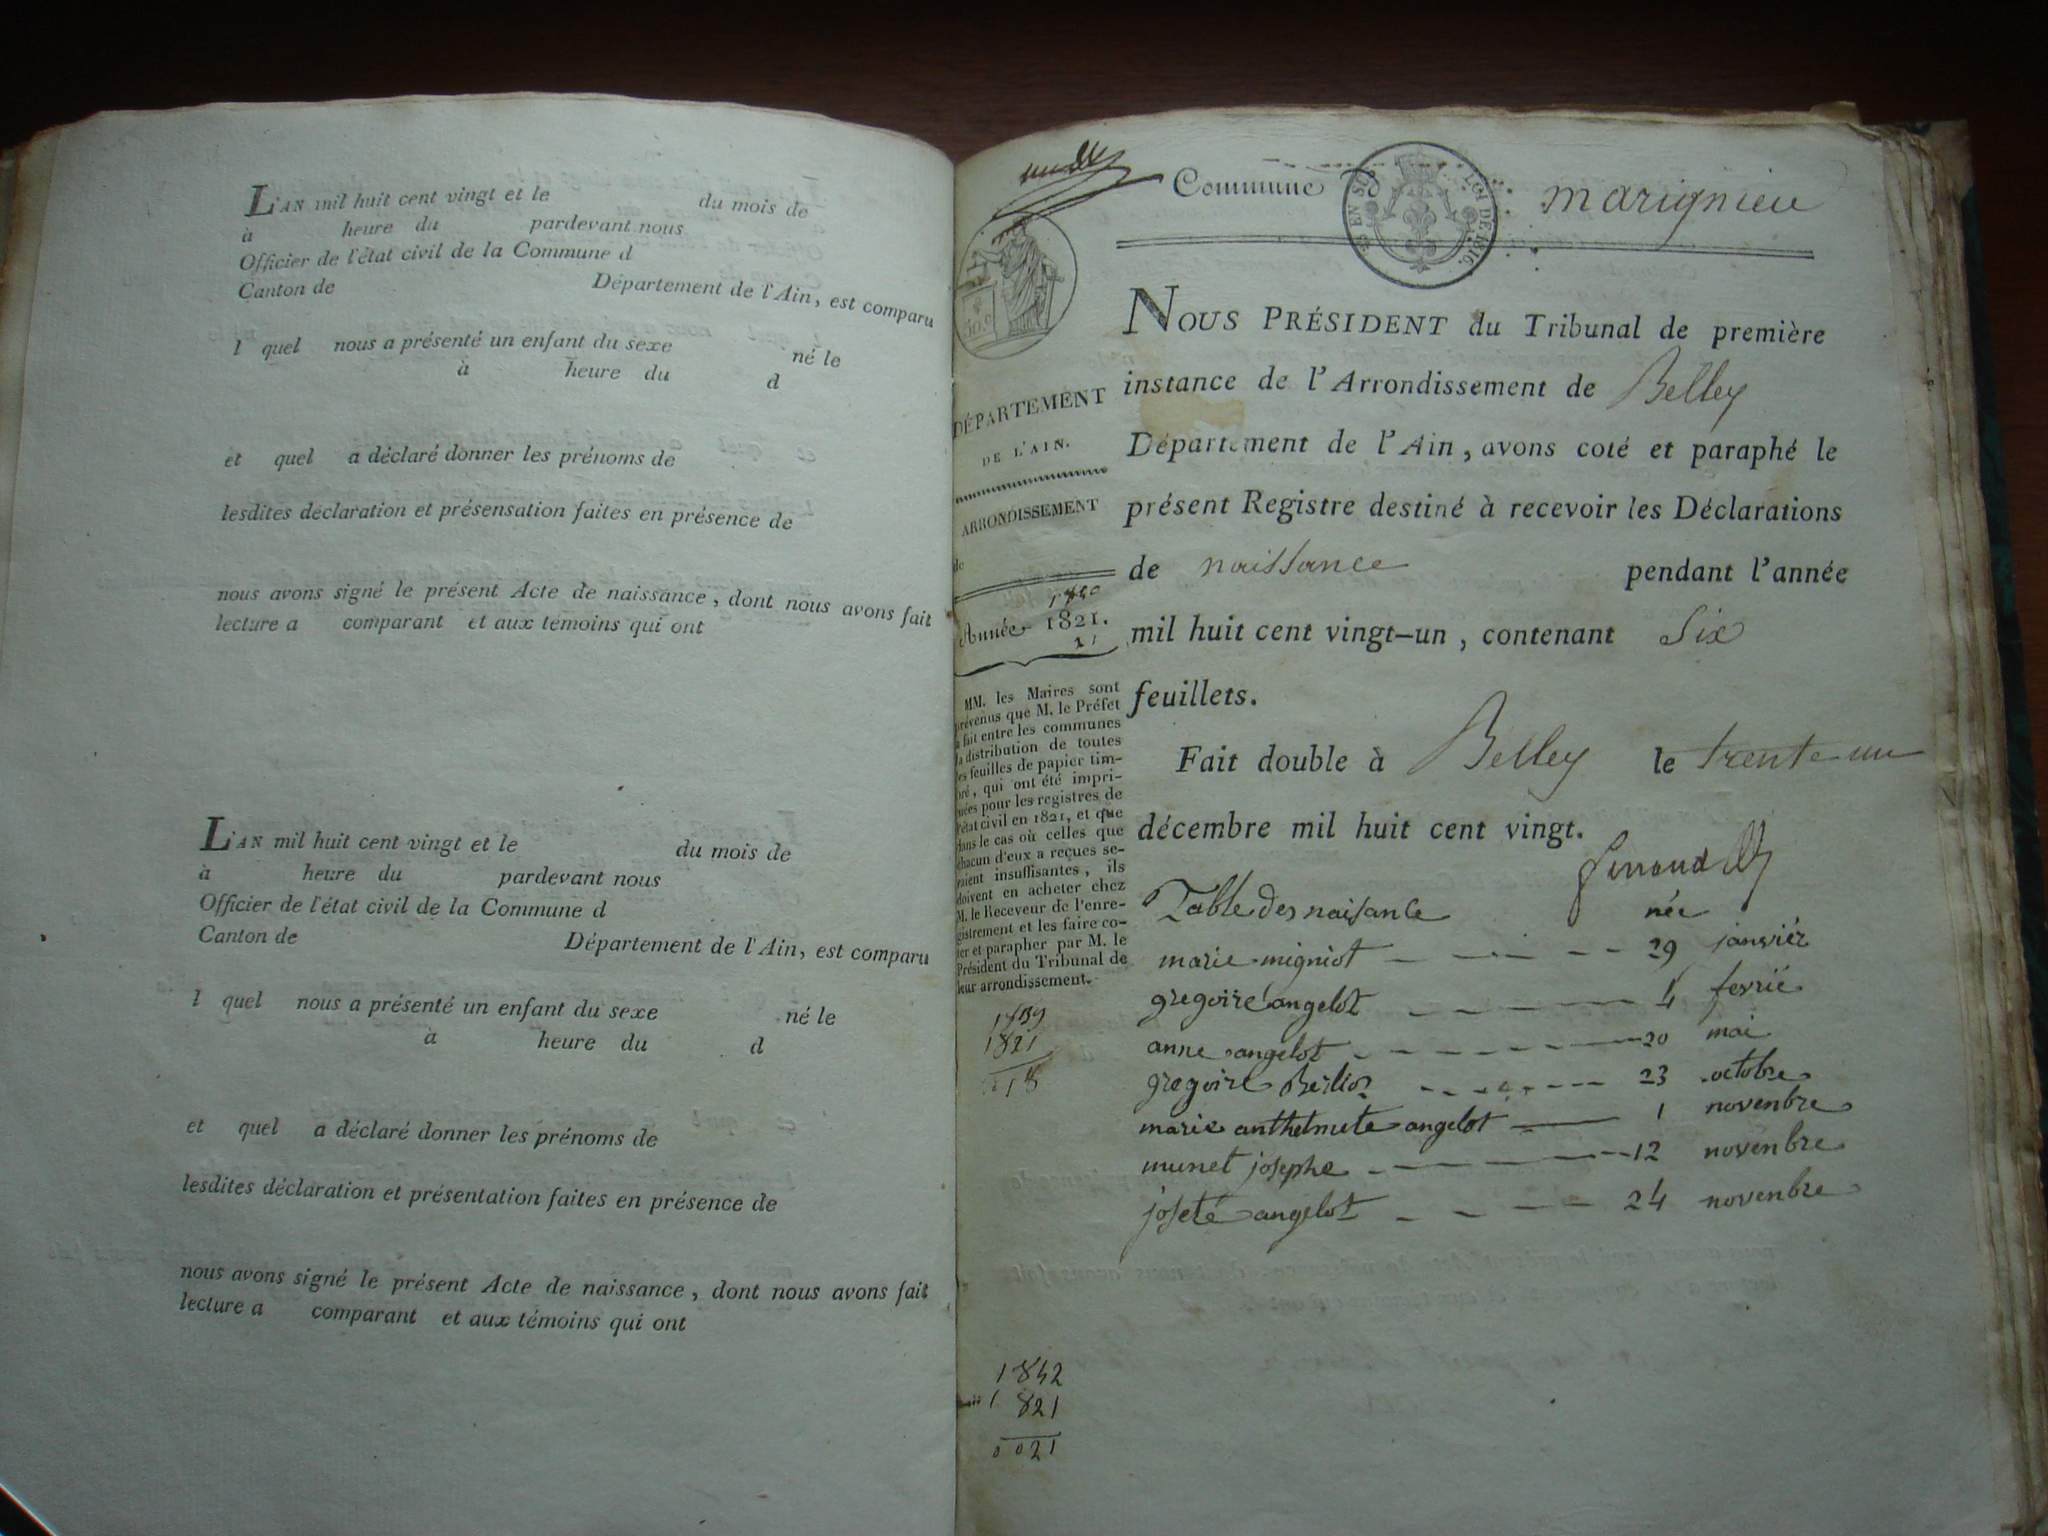 L'AN mil huit cent vingt et le du mois de
à heure du pardevant nous
Officier de l'état civil de la Commune d
Canton de Département de l'Ain, est comparu
l quel nous a présenté un enfant du sexe né le
à heure du d
et quel a déclaré donner les prénoms de
lesdites déclaration et présensation faites en présence de
nous avons signé le présent Acte de naissance, dont nous avons fait
lecture a comparant et aux témoins qui ont
L'AN mil huit cent vingt et le du mois de
à heure du pardevant nous
Officier de l'état civil de la Commune d
Canton de Département de l'Ain, est comparu
l quel nous a présenté un enfant du sexe né le
à heure du d
et quel a déclaré donner les prénoms de
lesdites déclaration et présentation faites en présence de
nous avons signé le présent Acte de naissance, dont nous avons fait
lecture a comparant et aux témoins qui ont
Commune d marignieu
EN SUS LOI DE 1816.
DÉPARTEMENT
DE L'AIN.
ARRONDISSEMENT
de
Année 1821.
21
MM. les Maires sont
prévenus que M. le Préfet
a fait entre les communes
la distribution de toutes
les feuilles de papier tim-
bré, qui ont été impri-
mées pour les registres de
l'état civil en 1821, et que
dans le cas où celles que
chacun d'eux a reçues se-
raient insuffisantes, ils
doivent en acheter chez
M. le Receveur de l'enre-
gistrement et les faire co-
ter et parapher par M. le
Président du Tribunal de
leur arrondissement.
1821
18
1842
1821
0021
NOUS PRÉSIDENT du Tribunal de première
instance de l'Arrondissement de Belley
Département de l'Ain, avons coté et paraphé le
présent Registre destiné à recevoir les Déclarations
de naissance pendant l'année
mil huit cent vingt-un, contenant Six
feuillets.
Fait double à Belley le trente un
décembre mil huit cent vingt.
Table des naisance née
marie migniot 29 janvier
gregoire angelot 4 fevrié
anne angelot 20 mai
gregoire Berlioz 23 octobre
marie anthelmete angelot 1 novenbre
munet josephe 12 novenbre
joseté angelot 24 novenbre